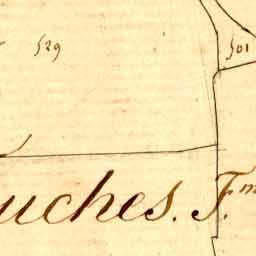 529
501
uches. F.m